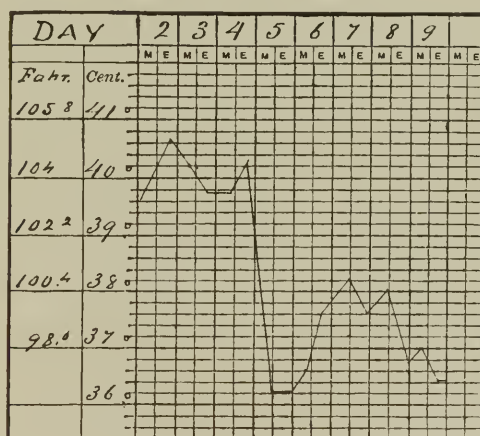 DAY 2 3 4 5 6 7 8 9
M E M E M E M E M E M E M E M E M E
Fahr. Cent.
105.8 41°
104 40°
102.2 39°
100.4 38°
98.6 37°
36°